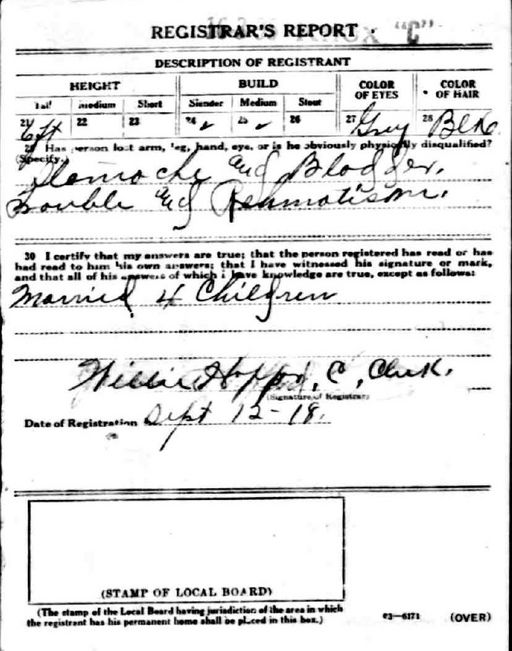 "C"
REGISTRAR'S REPORT
DESCRIPTION OF REGISTRANT
HEIGHT BUILD COLOR OF EYES COLOR OF HAIR
Tall Medium Short Slender Medium Stout
21 6ft 22 23 24 ✓ 25 ✓ 26 27 Grey 28 Blk
29 Has person lost arm, leg, hand, eye, or is he obviously physically disqualified?
(Specify.)
Stomache and Bladder
Trouble and Rehmatism.
30 I certify that my answers are true; that the person registered has read or has
had read to him his own answers; that I have witnessed his signature or mark,
and that all of his answers of which I have knowledge are true, except as follows:
Married 4 Children
Willie C, Clerk.
(Signature of Registrar)
Date of Registration Sept 12-18.
(STAMP OF LOCAL BOARD)
(The stamp of the Local Board having jurisdiction of the area in which
the registrant has his permanent home shall be placed in this box.)
03—6171 (OVER)